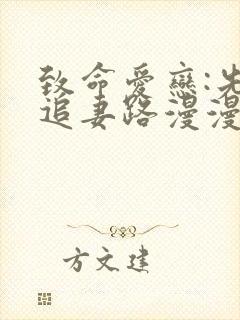 致命愛戀:先
追妻路漫漫
方文建